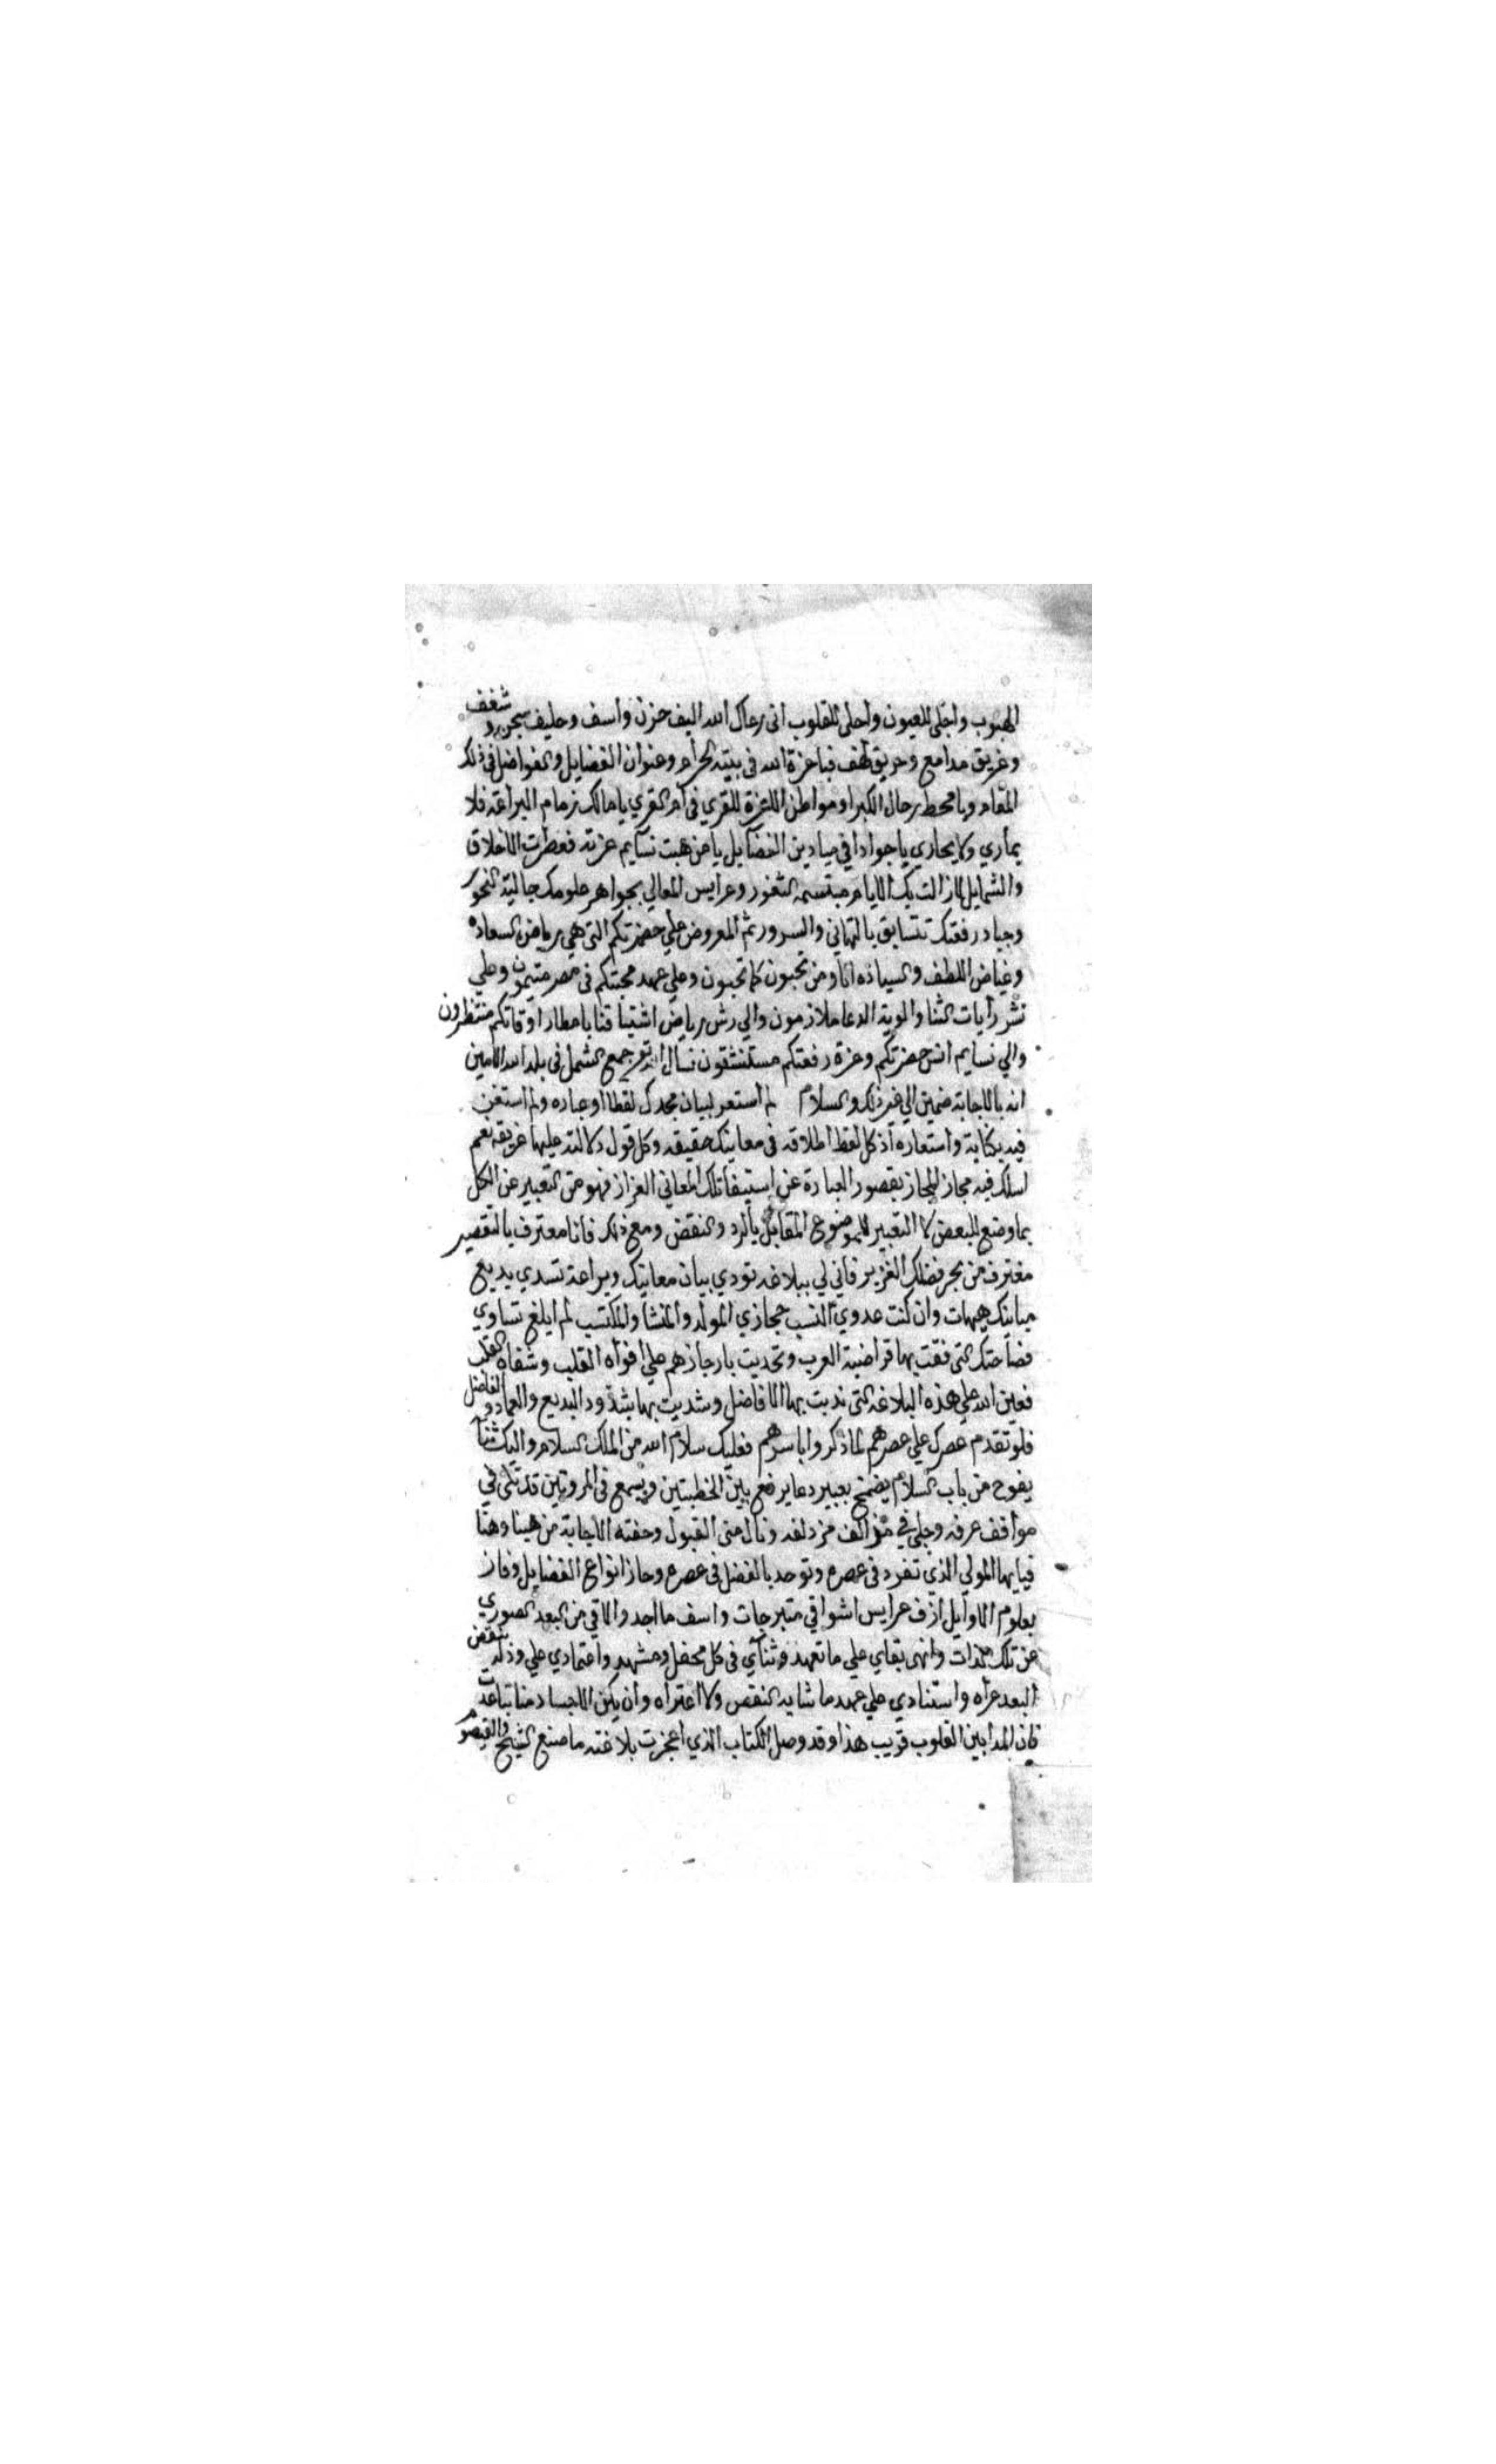 المحبوب واجلى للعيون واحلى للقلوب انى رعاك الله اليف حزن واسف وحليف شغف
وغريق مدامع وحريق لهف فيا عزة الله فى بيته الحرام وعنوان الفضايل والفواضل فى ذلك
المقام ويا محط رحال الكبرا ومواطن اللعزة للقري فى ام القري يا مالك زمام البراعة فلا
يماري ولا يجاري يا جوادا في ميادين الفضآيل يا من هبت نسآيم عزته فعطرت الاخلاق
والشمايل لازالت بك الايام مبتسمة الثغور وعرايس المعالي بجواهر علومك حالية النحور
وجياد رفعتك تتسابق بالتهاني والسرور ثم المعروض علي حضرتكم التى هي رياض السعاده
وغياض اللطف والسياده انا ومن تحبون كما تحبون وعلي عهد محبتكم فى مصر مقيمون وعلي
نشر رأيات الثنا والوية الدعا ملازمون والي رش رياض اشتياقنا بامطار اوقاتكم منتظرون
والي نسايم انس حضرتكم وعزة رفعتكم مستنشقون نسال الله تع جمع الشمل فى بلد الله الامين
انه بالاجابة ضمين الي غير ذلك والسلام لم استعر لبيان مجدك لفظا او عباره ولم استغن
فيه بكناية واستعاره اذ كل لفظ اطلاقه فى معانيك حقيقه وكل قول دلالته عليها عريقه نعم
اسلك فيه مجاز المجاز بقصور العبارة عن استيفا تلك المعاني الغزاز فهو من التعبير عن الكل
بما وضع للبعض لا التعبير للموضوع المقابل بالرد والنقض ومع ذلك فانا معترف بالتقصير
مغترف من بحر فضلك الغزير فاني لي ببلاغه تودي بيان معانيك وبراعة تسدي بديع
مبانيك هيهات وان كنت عدوي النسب حجازي المولد والمنشا والمكتسب لم ابلغ تساوي
فصاحتك التى فقت بها قراضبة العرب وتحديت بارجازهم علي افواه القلب وشفاه القلب
فعين الله علي هذه البلاغه التى بها الافاضل وشديت بها البديع والعماد والفاضل
فلو تقدم عصرك علي عصرهم لما ذكروا باسرهم فعليك سلام الله من الملك السلام واليك ثنآ
يفوح من باب السلام يضمخ بعبير دعا يرفع بين الخطبتين ويسمع فى المروتين قد تلى في
مواقف عرفه وجلي في مزدلفه ونال منى القبول وحفته الاجابة من هينا وهنا
فيا ايها المولي الذي تفرد فى عصره وتوحد بالفضل فى عصره وحاز انواع الفضايل وفاز
بعلوم الاوايل ازف عرايس اشواقي متبرجات واسف ما اجد والاقي من البعد الصوري
عن تلك الذات وانهى بقاي علي ما تعهد وثنآي فى كل محفل ومشهد واعتمادي علي وذلم ينقض
البعد عراه واستنادي علي عهد ما شابه النقص ولا اعتراه وان يكن الاجساد منا تباعدت
فان المدا بين القلوب قريب هذا وقد وصل الكتاب الذي اعجزت بلاغته ما صنع الشيح والقيصوم